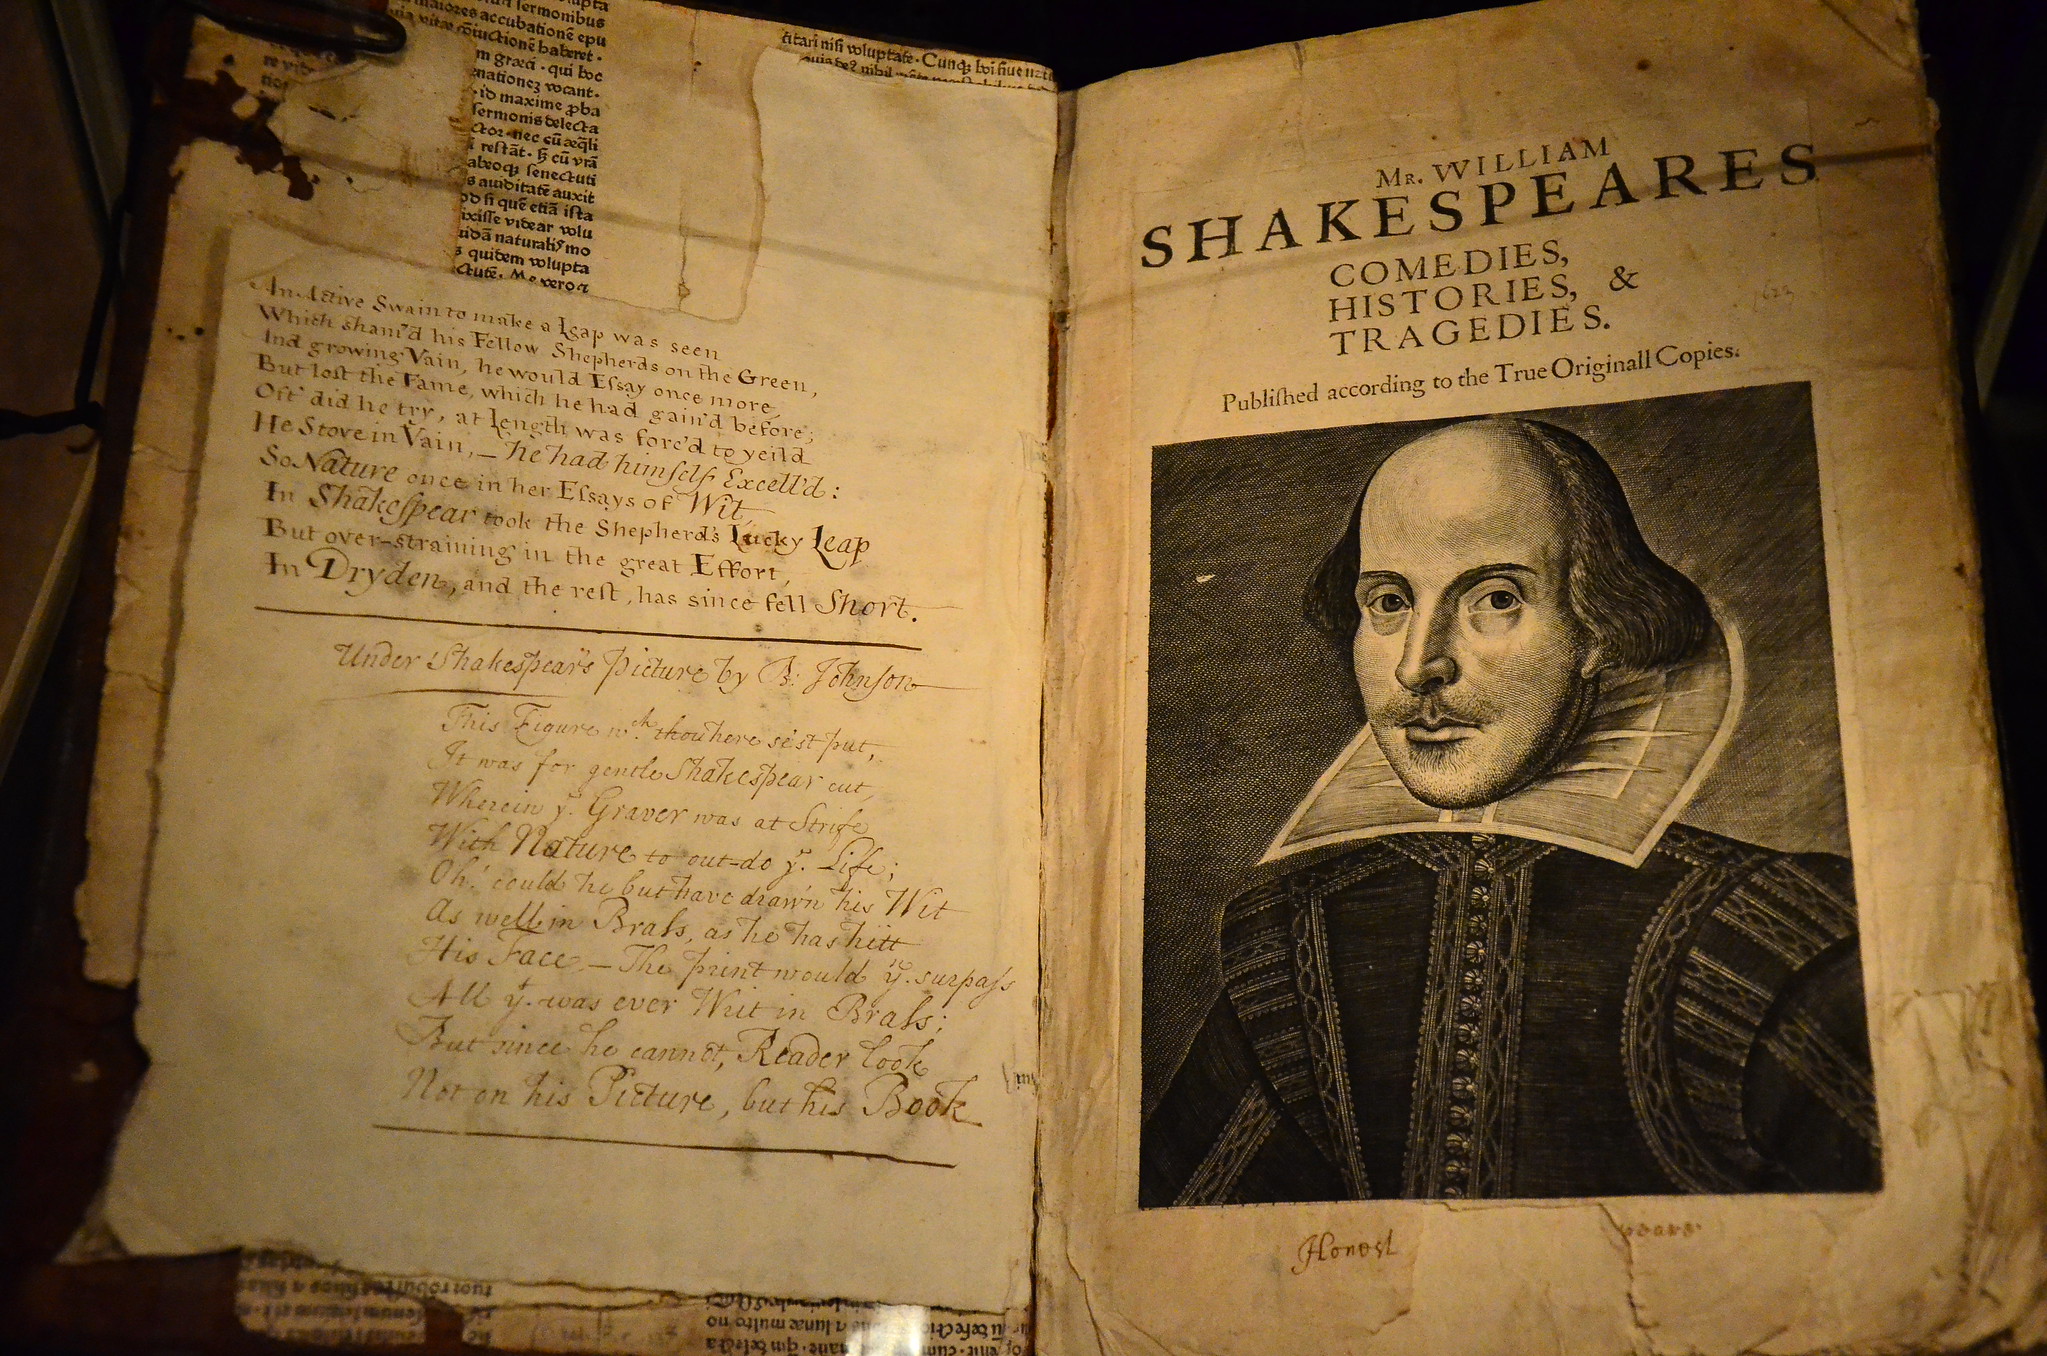 sermonibus
maiores accubationē epu
via vitæ cōiunctionē haberet ·
m græci · qui hoc
enationeʒ vocant ·
· id maxime ꝓba
sermonis delecta
ctor · nec cū æq̄li
i restāt · ħ cū vrā
abeoqʒ senectuti
s auiditatē auxit
od si quē etiā ista
ixisse videar volu
uidā naturalis mo
ʒ quidem volupta
ctutē.
citari nisi voluptate · Cunqʒ
An Active Swain to make a Leap was seen
Which sham'd his Fellow Shepherds on the Green,
And growing Vain, he would Eſsay once more,
But lost the Fame, which he had gain'd before;
Oft' did he try, at Length was forc'd to yeild
He Stove in Vain, – he had himſelf Excell'd:
So Nature once in her Eſsays of Wit,
In Shakeſpear took the Shepherd's Lucky Leap
But over-straining in the great Effort,
In Dryden, and the reſt, has since fell Short.
Under Shakespear's Picture by B: Johnſon
This Figure wch. thou here se'st put,
It was for gentle Shakespear cut,
Wherein ye. Graver was at Strife
With Nature to out-do ye. Life;
Oh! could he but have drawn his Wit
As well in Braſs, as he has hitt
His Face – The print would yn. surpaſs
All yt. was ever Writ in Braſs;
But since he cannot, Reader look
Not on his Picture, but his Book
Mr. WILLIAM
SHAKESPEARES
COMEDIES,
HISTORIES, &
TRAGEDIES.
Publiſhed according to the True Originall Copies.
1622
Honest